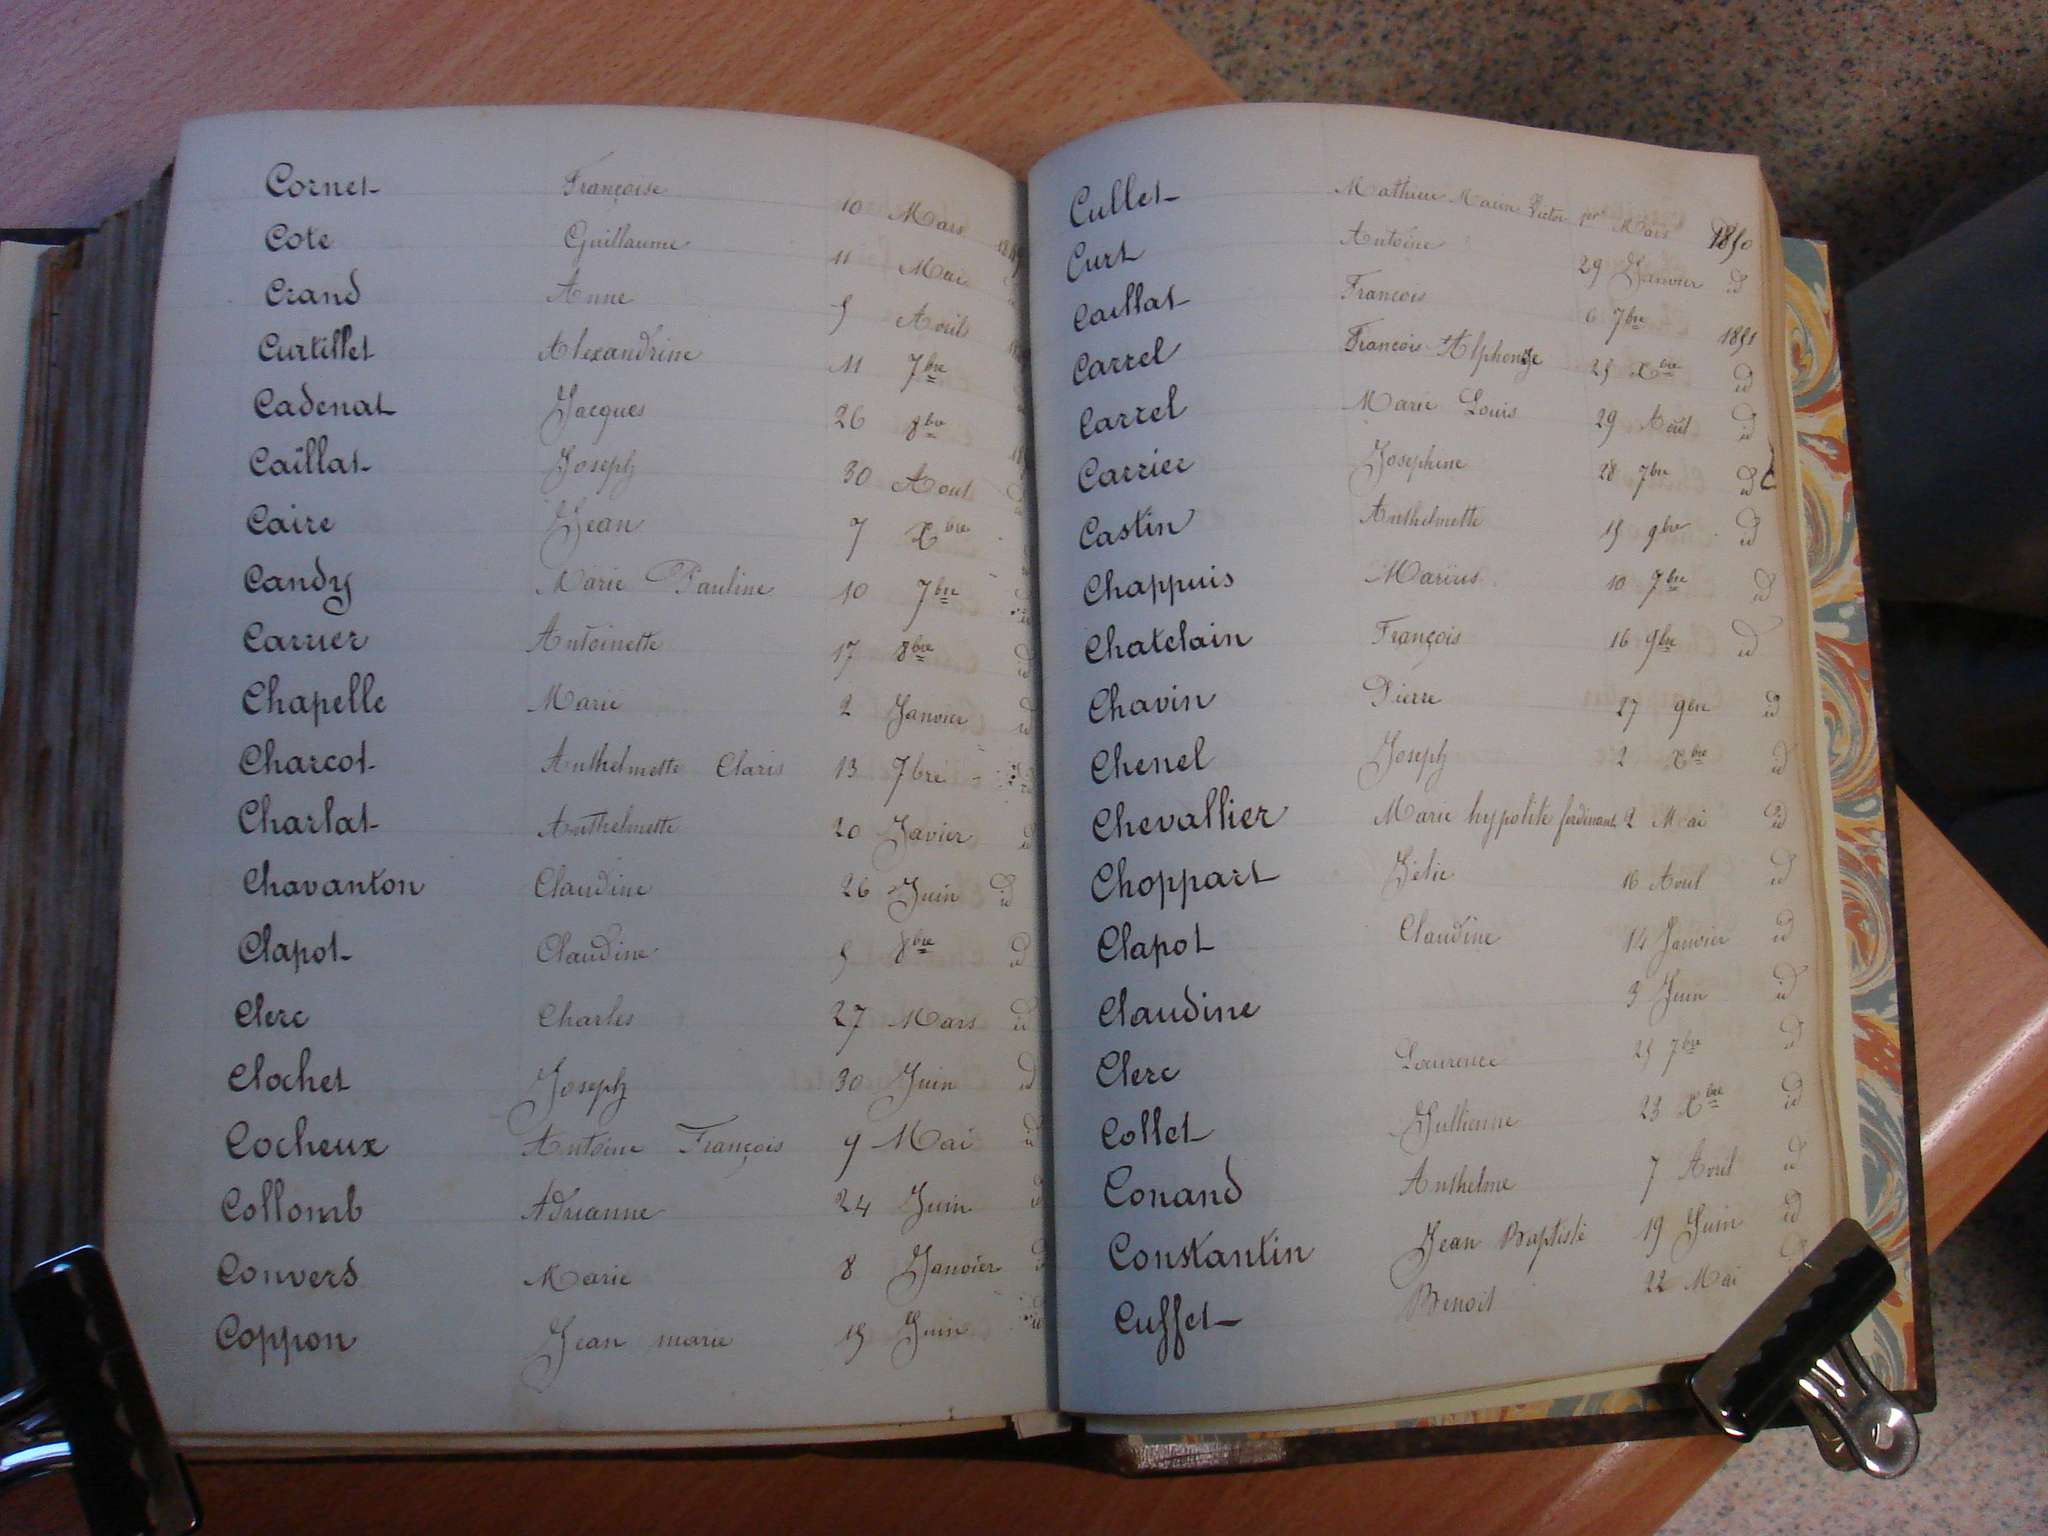 Cornet Françoise 10 Mars
Cote Guillaume 11 Mai
Crand Anne 5 Avril
Curtillet Alexandrine 11 7bre
Cadenat Jacques 26 8bre
Caillat Joseph 30 Aout
Caire Jean 7 Xbre
Candy Marie Pauline 10 7bre id
Carrier Antoinette 17 8bre id
Chapelle Marie 2 Janvier id
Charcot Anthelmette Claris 13 7bre
Charlat Anthelmette 20 Javier id
Chavanton Claudine 26 Juin id
Clapot Claudine 5 8bre id
Clerc Charles 27 Mars id
Clochet Joseph 30 Juin id
Cocheux Antoine François 9 Mai id
Collomb Adrianne 24 Juin id
Convers Marie 8 Janvier
Coppon Jean marie 15 Juin id
Cullet Mathieu Marin Victor pr Mars 1850
Curt Antoine 29 Janvier id
Caillat François 6 7bre 1851
Carrel François Alphonse 25 Xbre id
Carrel Marie Louis 29 Août id
Carrier Josephine 28 7bre id
Castin Anthelmette 15 9bre id
Chappuis Marius 10 7bre id
Chatelain François 16 9bre id
Chavin Pierre 27 9bre id
Chenel Joseph 2 Xbre id
Chevallier Marie hypolite ferdinant 2 Mai id
Choppart Zélie 16 Avril id
Clapot Claudine 14 Janvier id
Claudine 3 Juin id
Clerc Laurence 25 7bre id
Collet Jullienne 23 Xbre id
Conand Anthelme 7 Avril id
Constantin Jean Baptiste 19 Juin id
Cuffet Benoit 22 Mai